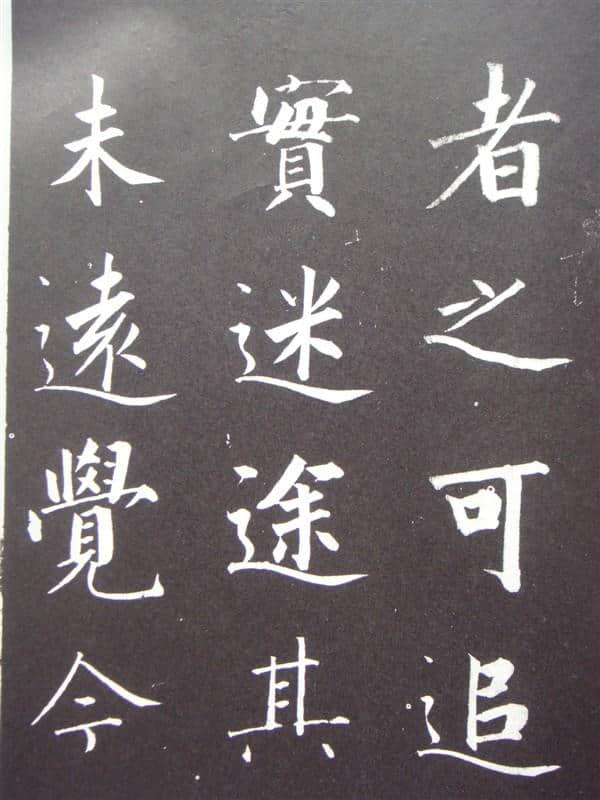 者之可追
實迷途其
未遠覺今